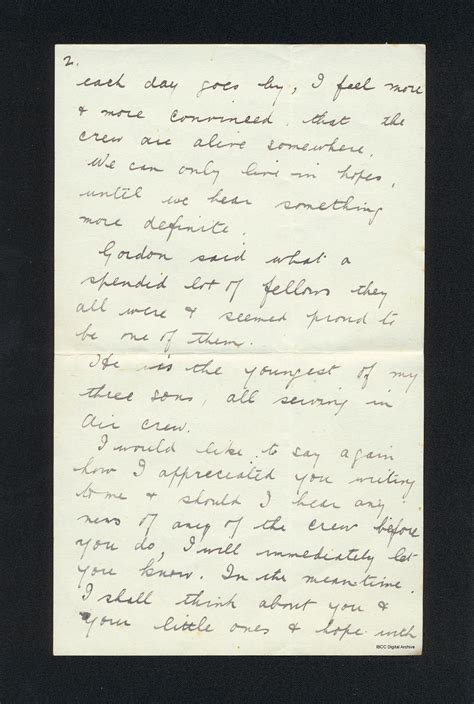 2.
each day goes by, I feel more
& more convinced that the
crew are alive somewhere.
We can only live in hopes,
until we hear something
more definite.
Gordon said what a
spendid lot of fellows they
all were & seemed proud to
be one of them.
He is the youngest of my
three sons, all serving in
air crew.
I would like to say again
how I appreciated you writing
to me & should I hear any
news of any of the crew before
you do, I will immediately let
you know. In the meantime.
I shall think about you &
your little ones & hope with
IBCC Digital Archive